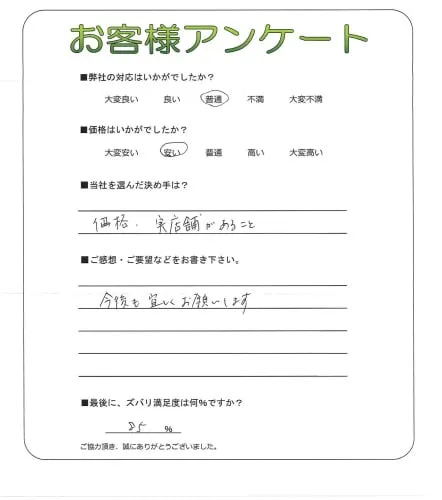 お客様アンケート
■弊社の対応はいかがでしたか？
大変良い 良い 普通 不満 大変不満
■価格はいかがでしたか？
大変安い 安い 普通 高い 大変高い
■当社を選んだ決め手は？
価格、実店舗があること
■ご感想・ご要望などをお書き下さい。
今後も宜しくお願いします
■最後に、ズバリ満足度は何％ですか？
85 ％
ご協力頂き、誠にありがとうございました。